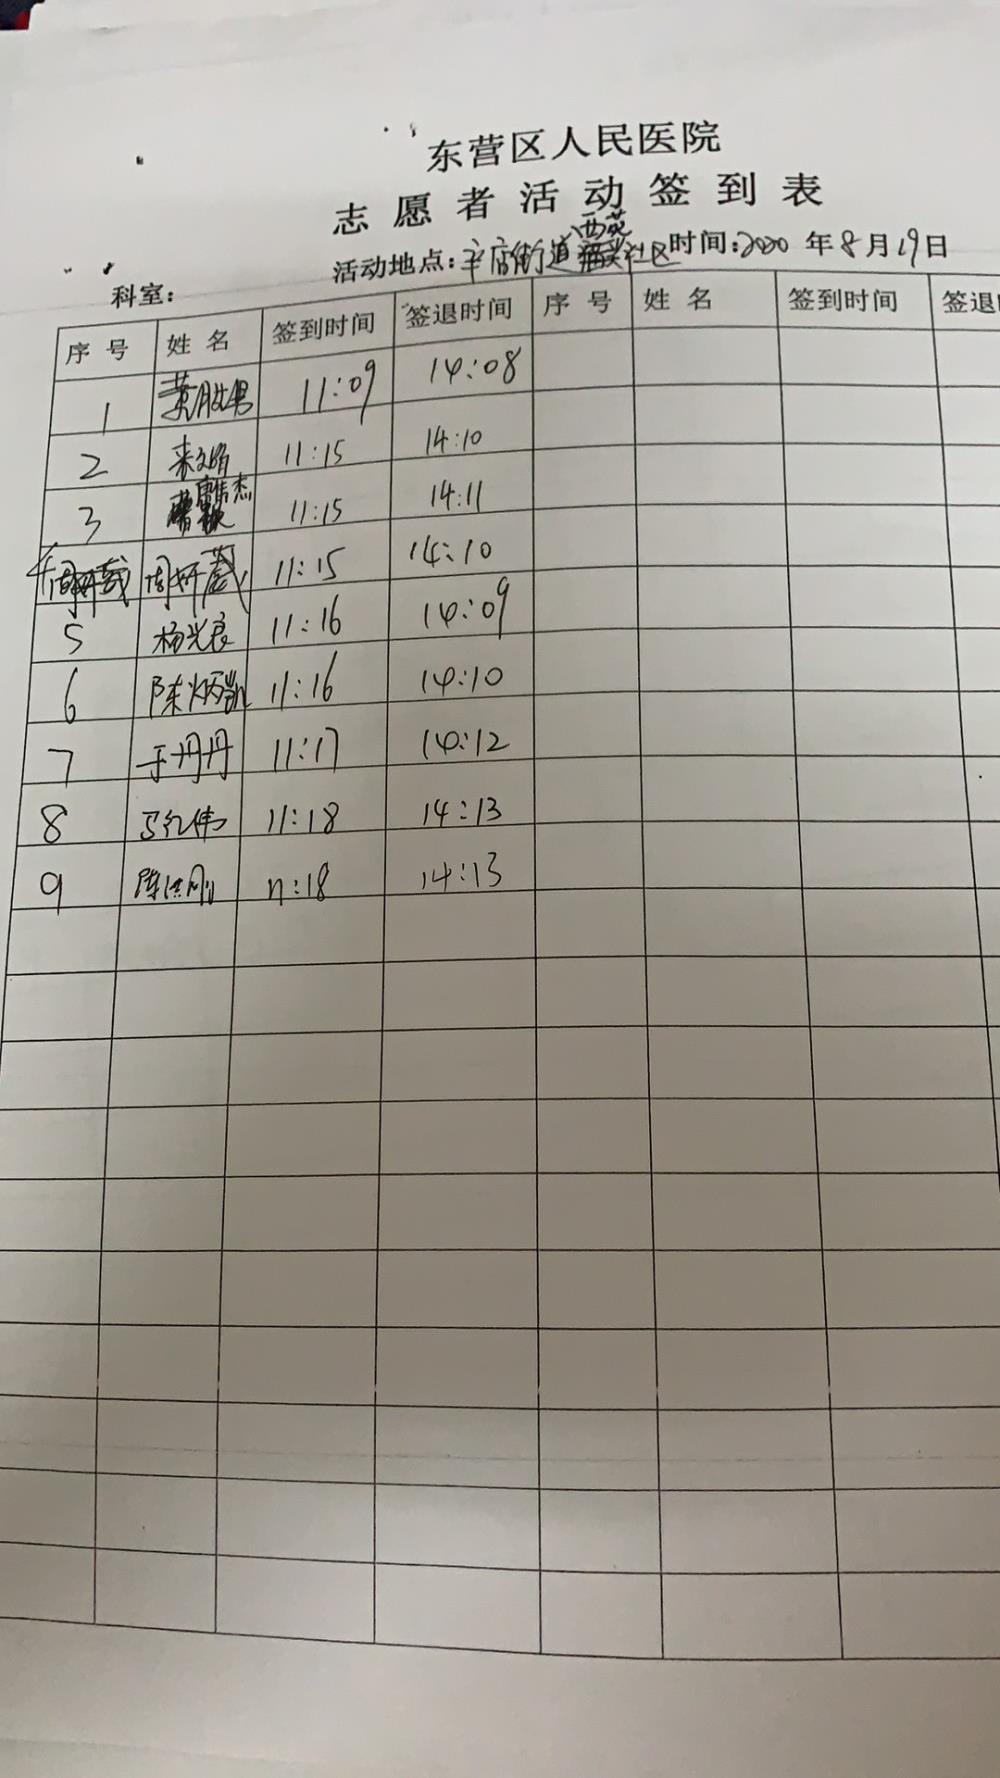 东营区人民医院
志愿者活动签到表
科室： 活动地点：辛店街道西苑社区 时间：2020年8月19日
序号 姓名 签到时间 签退时间 序号 姓名 签到时间 签退
1 黄胜男 11:09 14:08
2 11:15 14:10
3 11:15 14:11
4 周妍 11:15 14:10
5 杨光良 11:16 14:09
6 陈炳凯 11:16 14:10
7 于丹丹 11:17 14:12
8 马红伟 11:18 14:13
9 陈洪刚 11:18 14:13